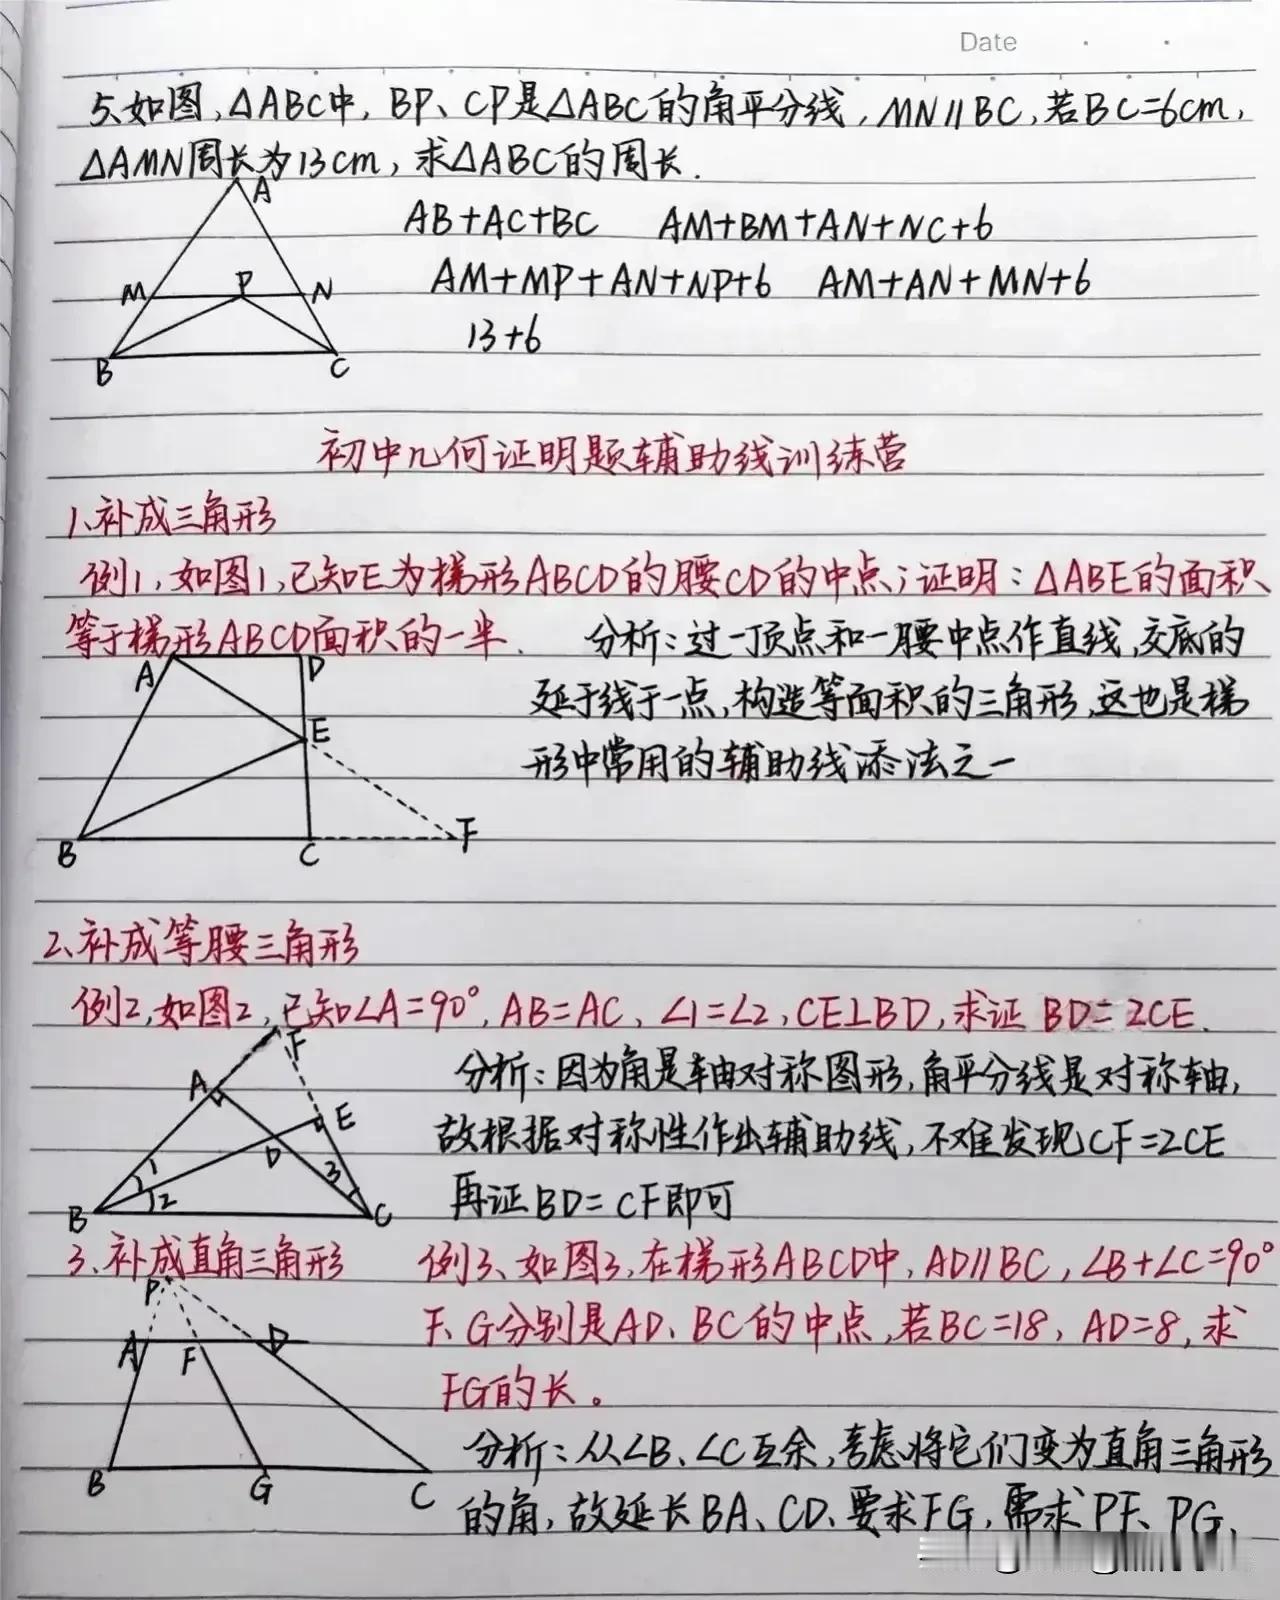 Date
5、如图,△ABC中,BP、CP是△ABC的角平分线,MN∥BC,若BC=6cm,
△AMN周长为13cm,求△ABC的周长.
A
AB+AC+BC AM+BM+AN+NC+6
M P N
AM+MP+AN+NP+6 AM+AN+MN+6
13+6
B C
初中几何证明题辅助线训练营
1、补成三角形
例1,如图1,已知E为梯形ABCD的腰CD的中点;证明:△ABE的面积
等于梯形ABCD面积的一半.
分析:过一顶点和一腰中点作直线,交底的
A D
延于线于一点,构造等面积的三角形,这也是梯
E
形中常用的辅助线添法之一
B C F
2、补成等腰三角形
例2,如图2,已知∠A=90°,AB=AC,∠1=∠2,CE⊥BD,求证BD=2CE.
F
分析:因为角是轴对称图形,角平分线是对称轴,
A E
故根据对称性作出辅助线,不难发现CF=2CE
D
1 2 3
再证BD=CF即可
B C
3、补成直角三角形
例3、如图3,在梯形ABCD中,AD∥BC,∠B+∠C=90°
P
F、G分别是AD、BC的中点,若BC=18,AD=8,求
A F D
FG的长。
分析:从∠B、∠C互余,考虑将它们变为直角三角形
B G C
的角,故延长BA、CD、要求FG,需求PF、PG、